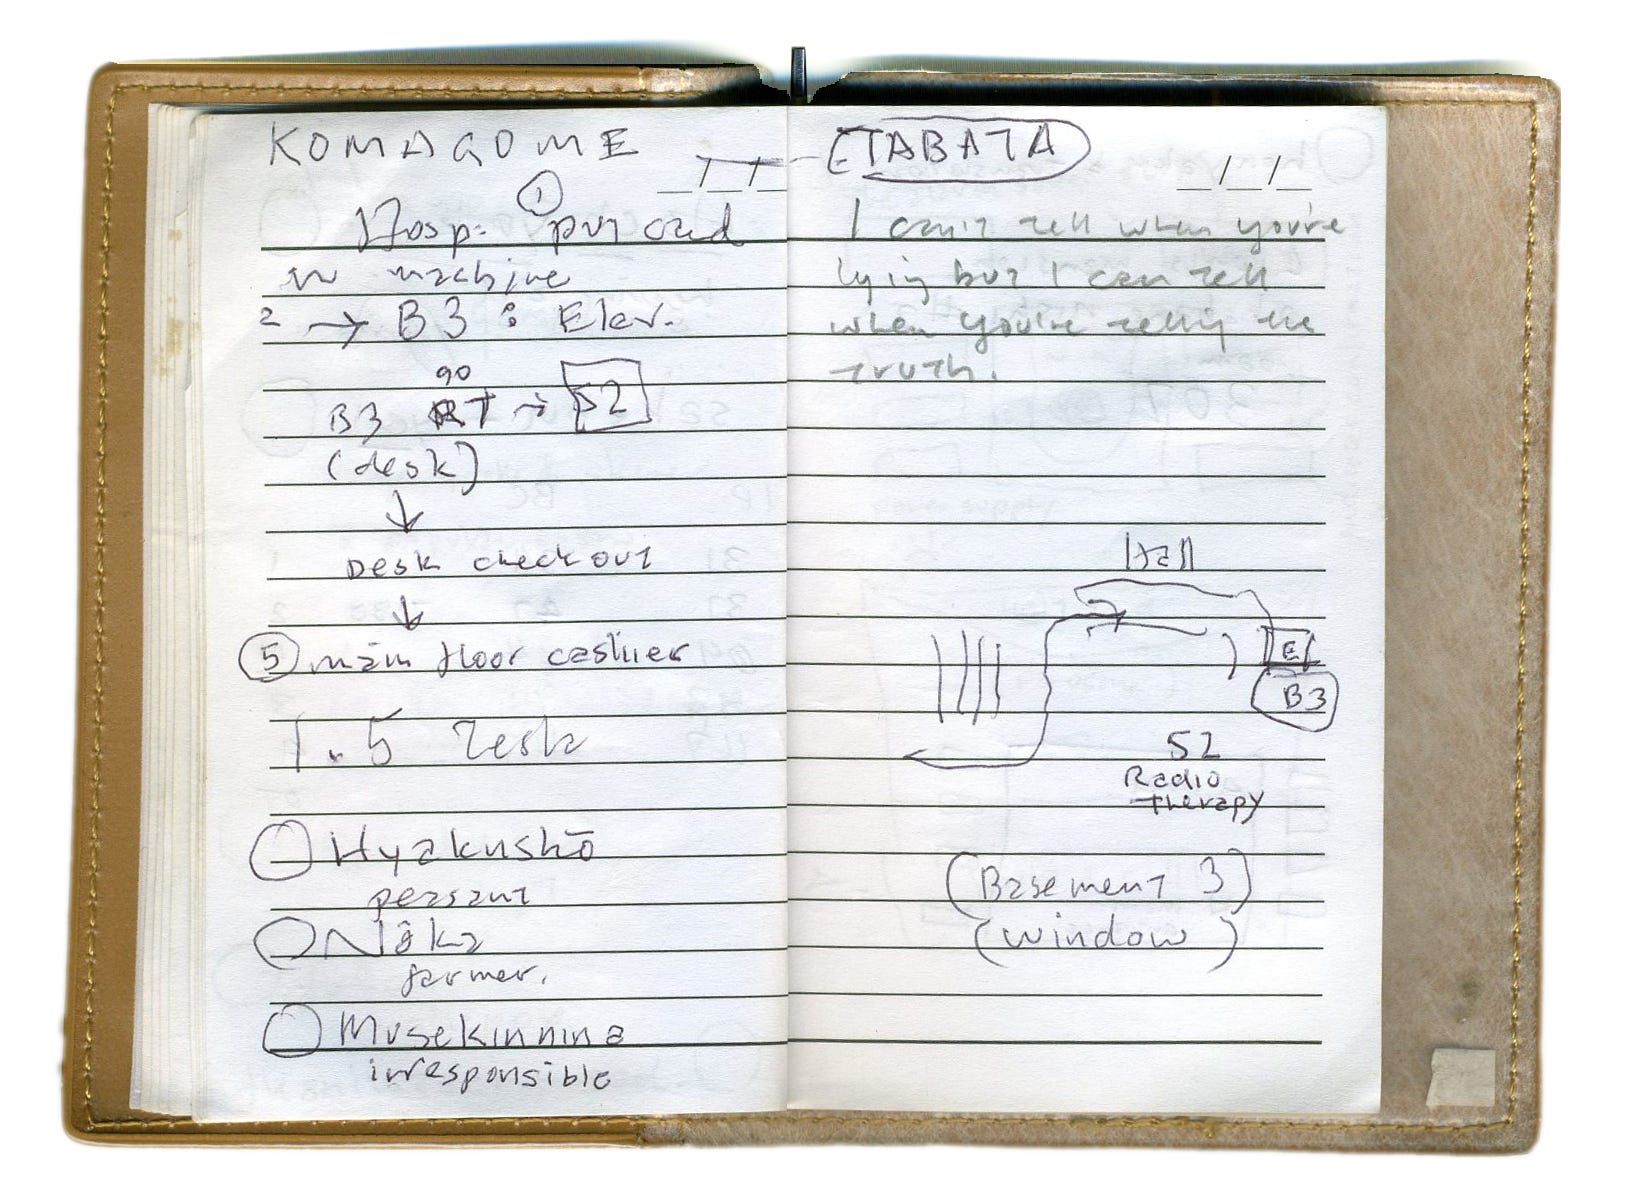 KOMAGOME
_/_/_
①
Hosp. put card
in machine
2 → B3 : Elev.
go
B3 → 52
(desk)
↓
Desk check out
↓
⑤ main floor cashier
1.5
Hyakushō
peasant
Nōka
farmer.
Musekinnina
irresponsible
TABATA
_/_/_
I can't tell when you're
lying but I can tell
when you're telling the
truth.
Hall
El
B3
52
Radio
therapy
(Basement 3)
(window)